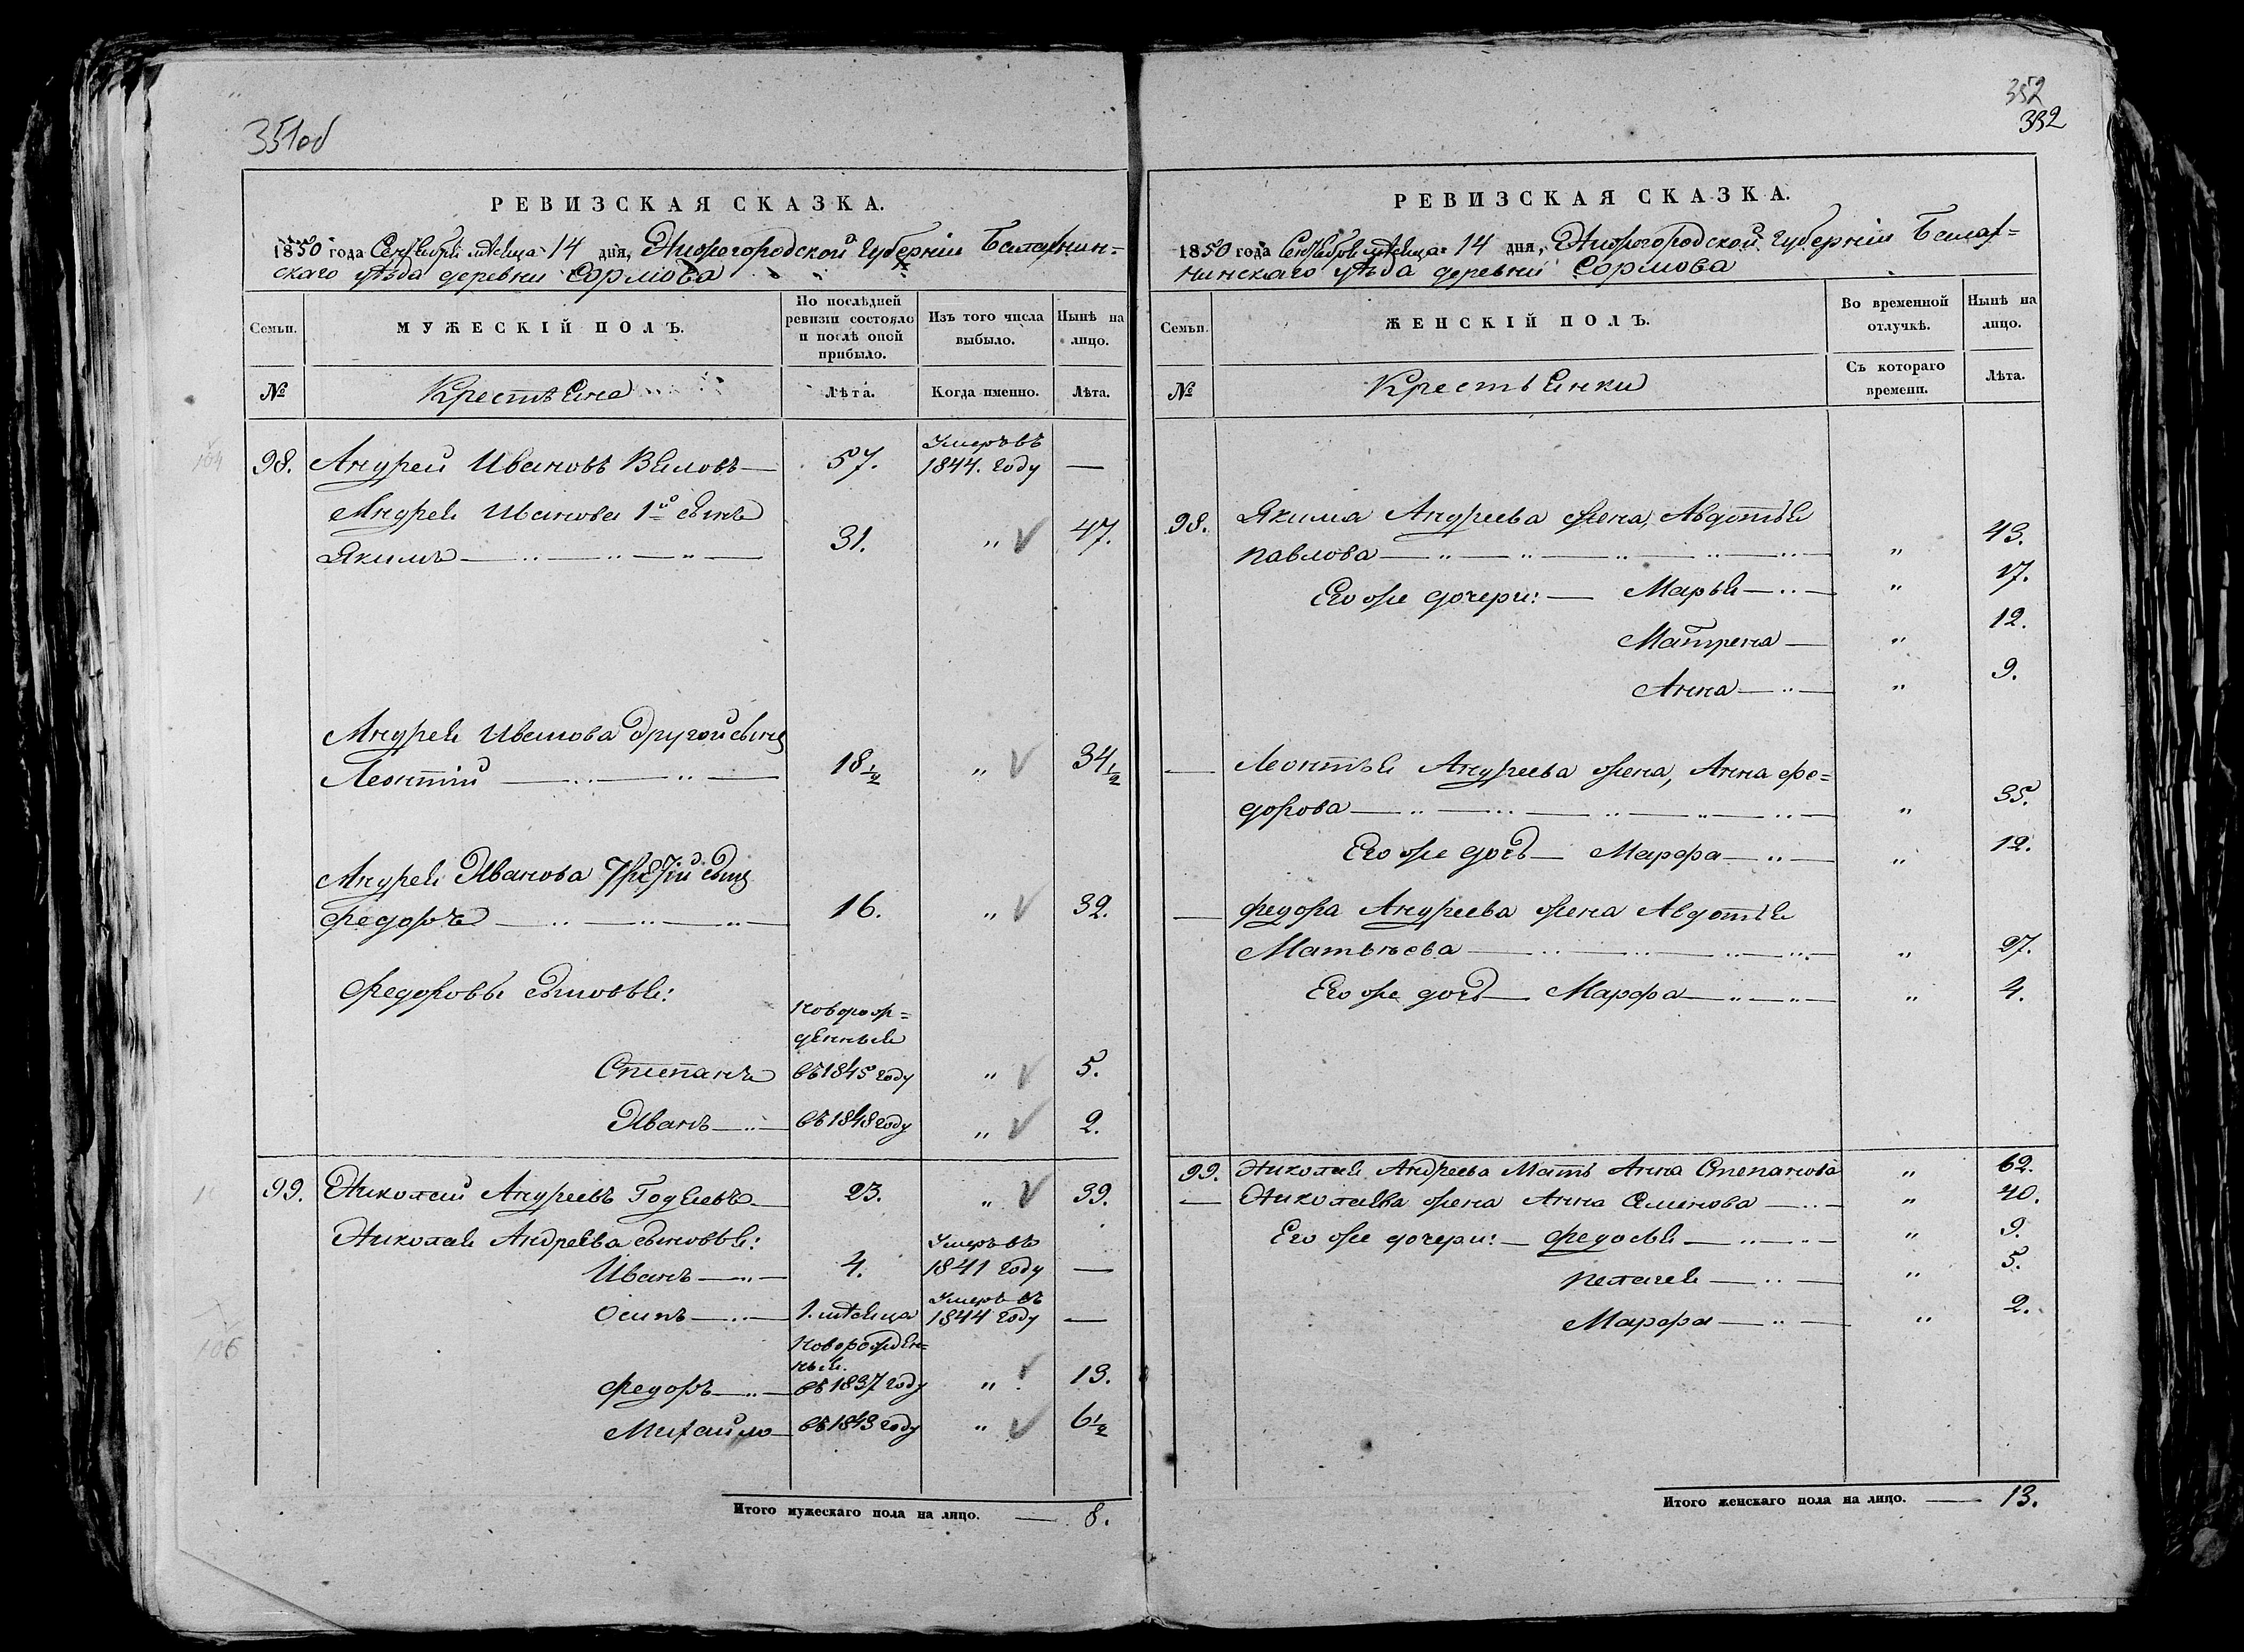 351об
РЕВИЗСКАЯ СКАЗКА.
1850 года Сентября мѣсяца 14 дня, Нижегородской Губерніи Балахнин=
скаго уѣзда деревни Сормова
Семьи.
МУЖЕСКІЙ ПОЛЪ.
По послѣдней
ревизіи состояло
и послѣ оной
прибыло.
Изъ того числа
выбыло.
Нынѣ на
лицо.
№
Крестьяне
Лѣта.
Когда именно.
Лѣта.
104
98. Андрей Ивановъ 57. Умеръ въ
1844. году —
Андрея Иванова 1й сынъ
Якимъ 31. „ 47.
Андрея Иванова другой сынъ
Леонтій 18 1/2 „ 34 1/2
Андрея Иванова Третій сынъ
Федоръ 16. „ 32.
Федоровы сыновья:
Новорож=
денные
Степанъ въ 1845 году „ 5.
Иванъ въ 1848 году „ 2.
99. Николай Андреевъ 23. „ 39.
Николая Андреева сыновья:
Иванъ 4. Умеръ въ
1841 году —
Осипъ 1. мѣсяца Умеръ въ
1844 году —
106
Новорожден=
ные.
Федоръ въ 1837 году „ 13.
Михайло въ 1843 году „ 6 1/2
Итого мужескаго пола на лицо. — 8.
352
332
РЕВИЗСКАЯ СКАЗКА.
1850 года Сентября мѣсяца 14 дня, Нижегородской Губерніи Балах=
нинскаго уѣзда деревни Сормова
Семьи.
ЖЕНСКІЙ ПОЛЪ.
Во временной
отлучкѣ.
Нынѣ на
лицо.
№
Крестьянки
Съ котораго
времени.
Лѣта.
98. Якима Андреева жена, Авдотья
Павлова „ 43.
Его же дочери: — Марья „ 17.
Матрена „ 12.
Анна „ 9.
— Леонтья Андреева жена, Анна Фе=
дорова „ 35.
Его же дочь — Марфа „ 12.
— Федора Андреева жена Авдотья
Матвѣева „ 27.
Его же дочь — Марфа „ 4.
99. Николая Андреева Мать Анна Степанова „ 62.
— Николаева жена Анна Семенова „ 40.
Его же дочери: — Федосья „ 9.
Пелагея „ 5.
Марфа „ 2.
Итого женскаго пола на лицо. — 13.